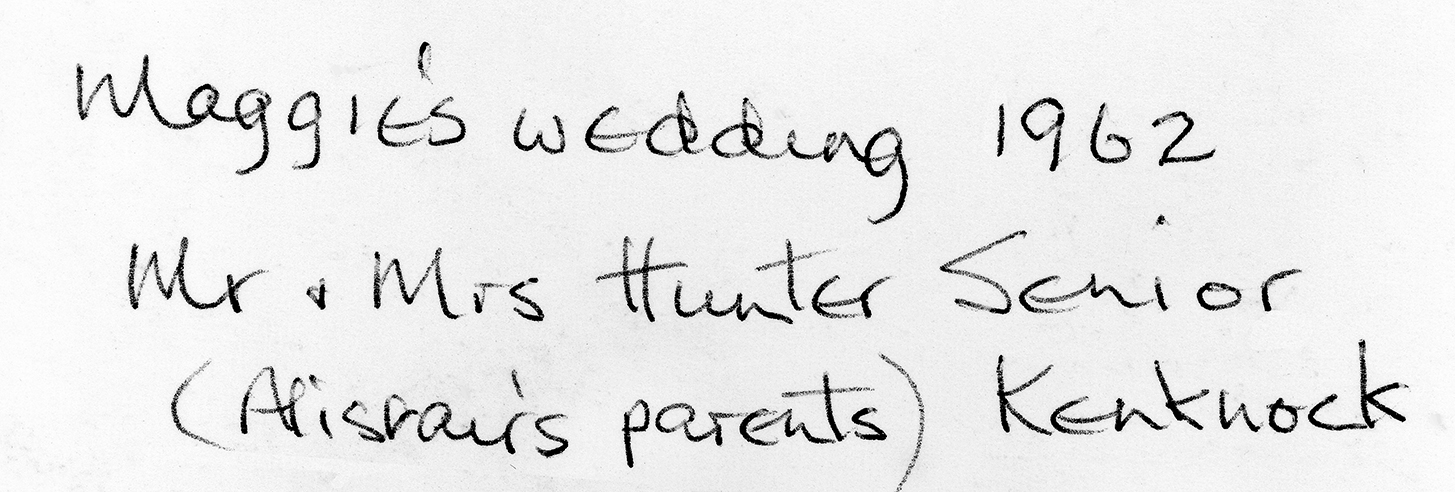 Maggie's wedding 1962
Mr & Mrs Hunter Senior
(Alistair's parents) Kenknock